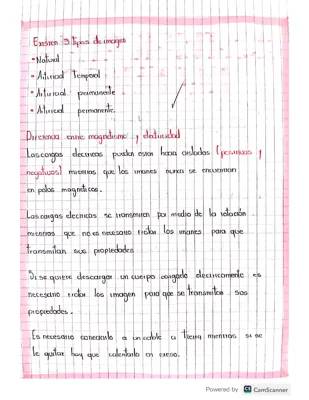 Existen 3 tipos de imanes
• Natural
• Artificial Temporal
• Artificial permanente
• Artificial permanente.
Diferencia entre magnetismo y electricidad
Las cargas electricas pueden estar aisladas (positivas y
negativas) mientras que los imanes nunca se encuentran
en polos magneticos.
Las cargas electricas se transmiten por medio de la
mientras que no es necesario frotar los imanes para que
transmitan sus propiedades
Si se quiere descargar un cuerpo cargado electricamente es
necesario frotar los imagen para que se transmitan sus
propiedades.
Es necesario conectarlo a un cable a tierra mientras si se
le quitar hay que calentarlo en
Powered by CS CamScanner